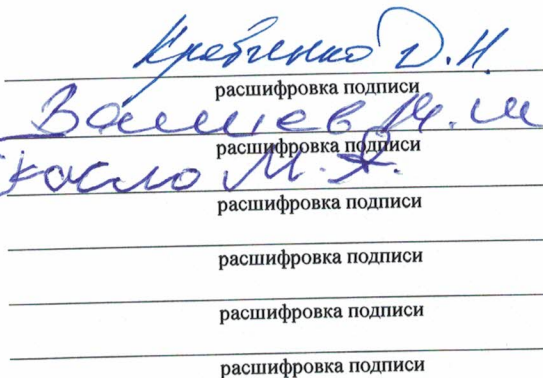 Кравченко Д.Н
расшифровка подписи
Валиев М.Ш
расшифровка подписи
Косло М.Я.
расшифровка подписи
расшифровка подписи
расшифровка подписи
расшифровка подписи